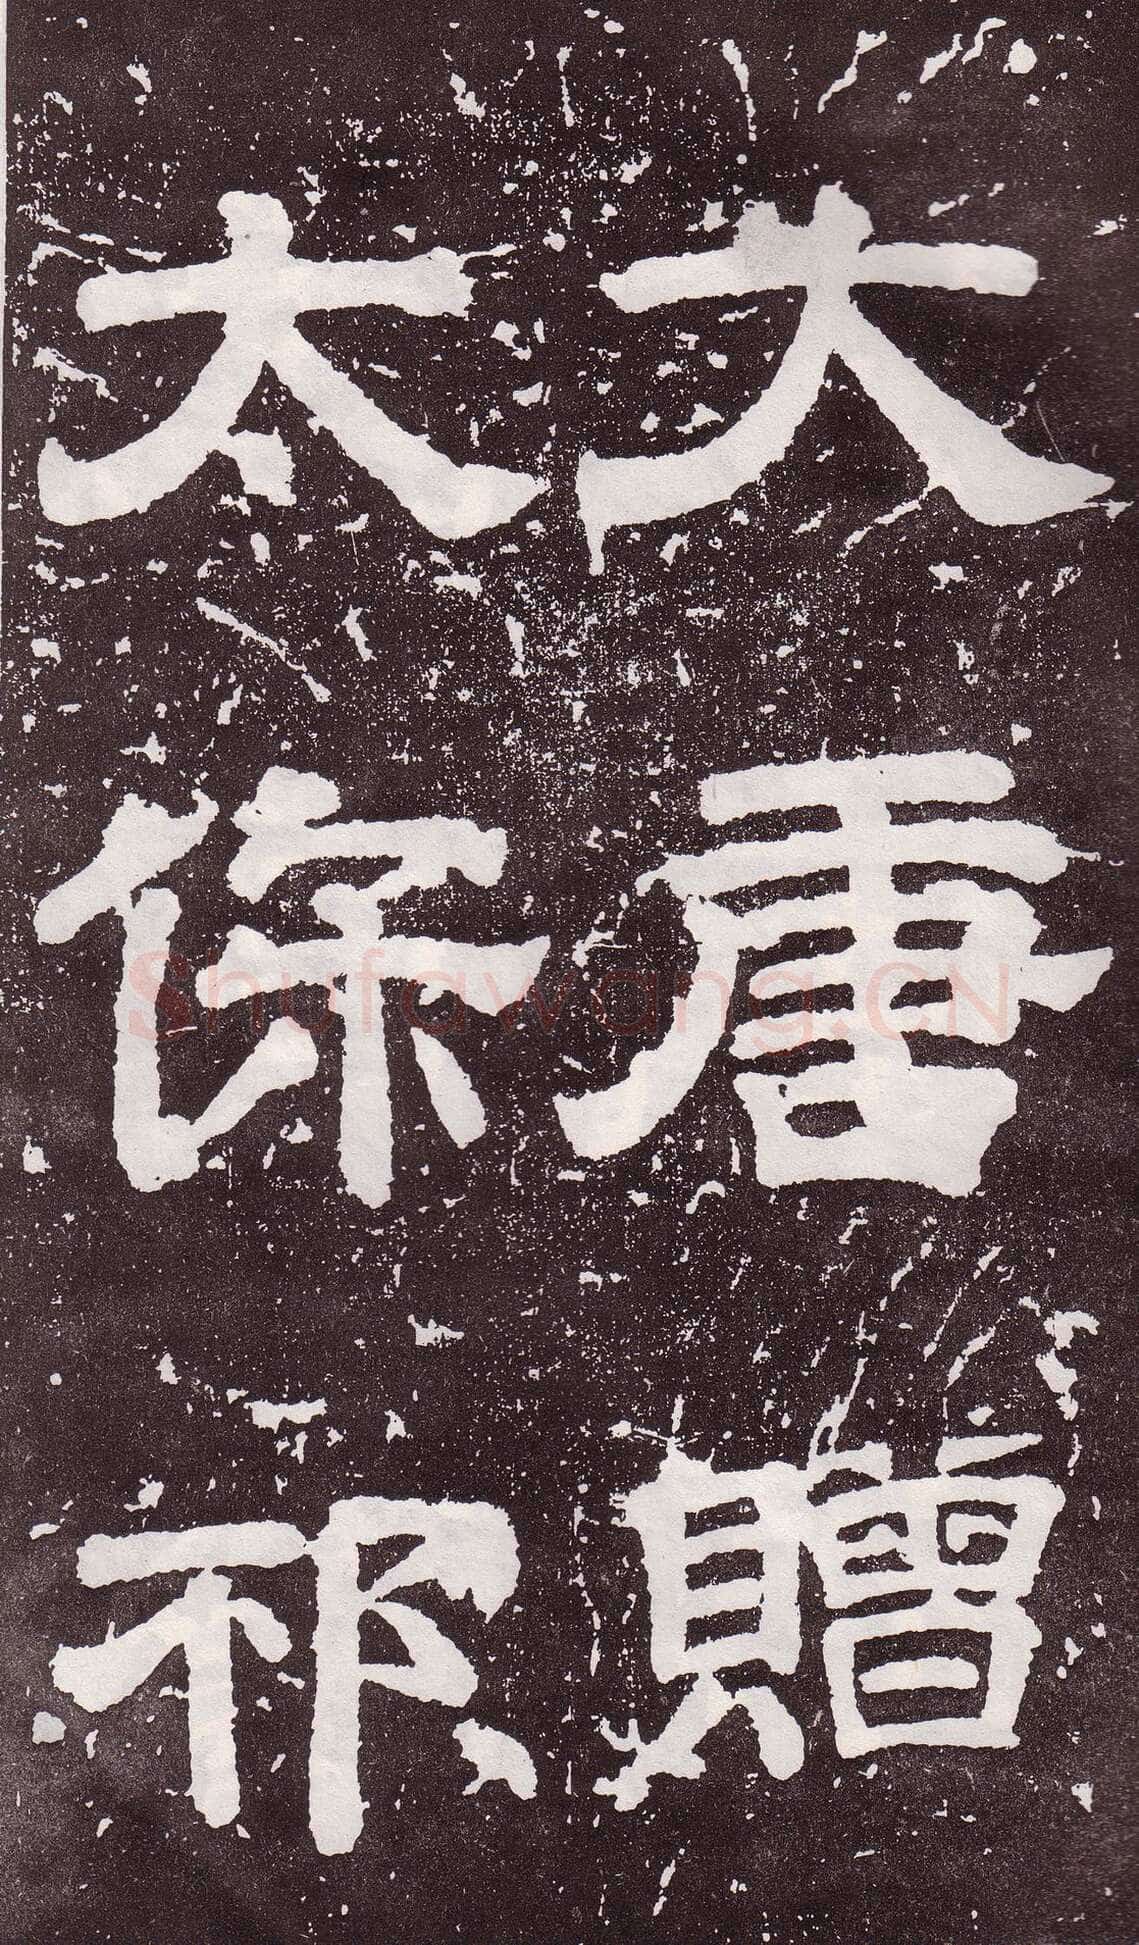 大唐贈
太保祁
Shufawang.CN